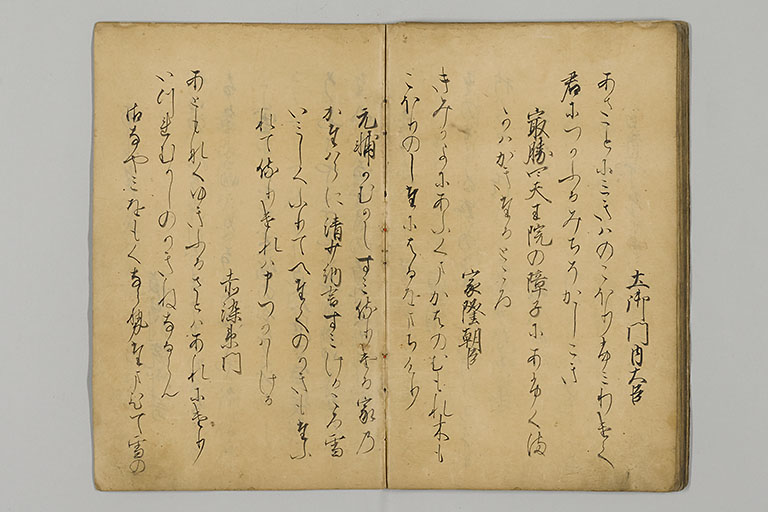 土御門内大臣
あさことにみきはのこほりふみわけて
君につかふるみちそかしこき
最勝四天王院の障子にあふくま
かはかきたるところ
家隆朝臣
きみかよにあふくまかはのむもれ木も
こほりのしたにはるをまちけり
元輔かむかしすみ侍りける家の
かたはらに清少納言すみけるころ雪
いみしくふりてへたてのかきもたふ
れて侍りけれは申つかはしける
赤染衛門
あともなくゆきふるさとはあれにけり
いつれむかしのかきねなるらん
御なやみをもくならせたまひて雪の